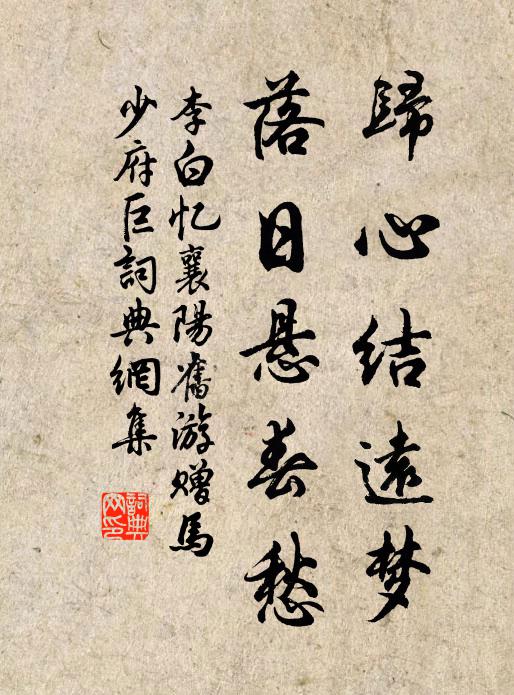 歸心結遠梦
落日悬春愁
李白忆襄陽舊游贈馬
少府巨詞典網集
詞典
网印